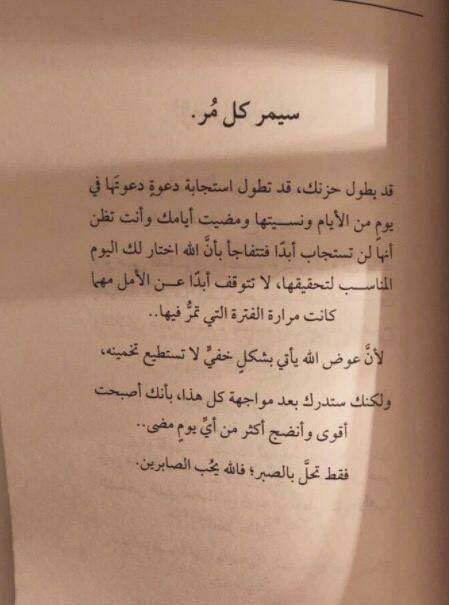 سيمر كل مُر.
قد يطول حزنك، قد تطول استجابة دعوةٍ دعوتَها في
يوم من الأيام ونسيتها ومضيت أيامك وأنت تظن
أنها لن تستجاب أبدًا فتتفاجأ بأنَّ الله اختار لك اليوم
المناسب لتحقيقها، لا تتوقف أبدًا عن الأمل مهما
كانت مرارة الفترة التي تمرُّ فيها..
لأنَّ عوض الله يأتي بشكلٍ خفيٍّ لا تستطيع تخمينه،
ولكنك ستدرك بعد مواجهة كل هذا، بأنك أصبحت
أقوى وأنضج أكثر من أيِّ يومٍ مضى..
فقط تحلَّ بالصبر؛ فالله يحُب الصابرين.